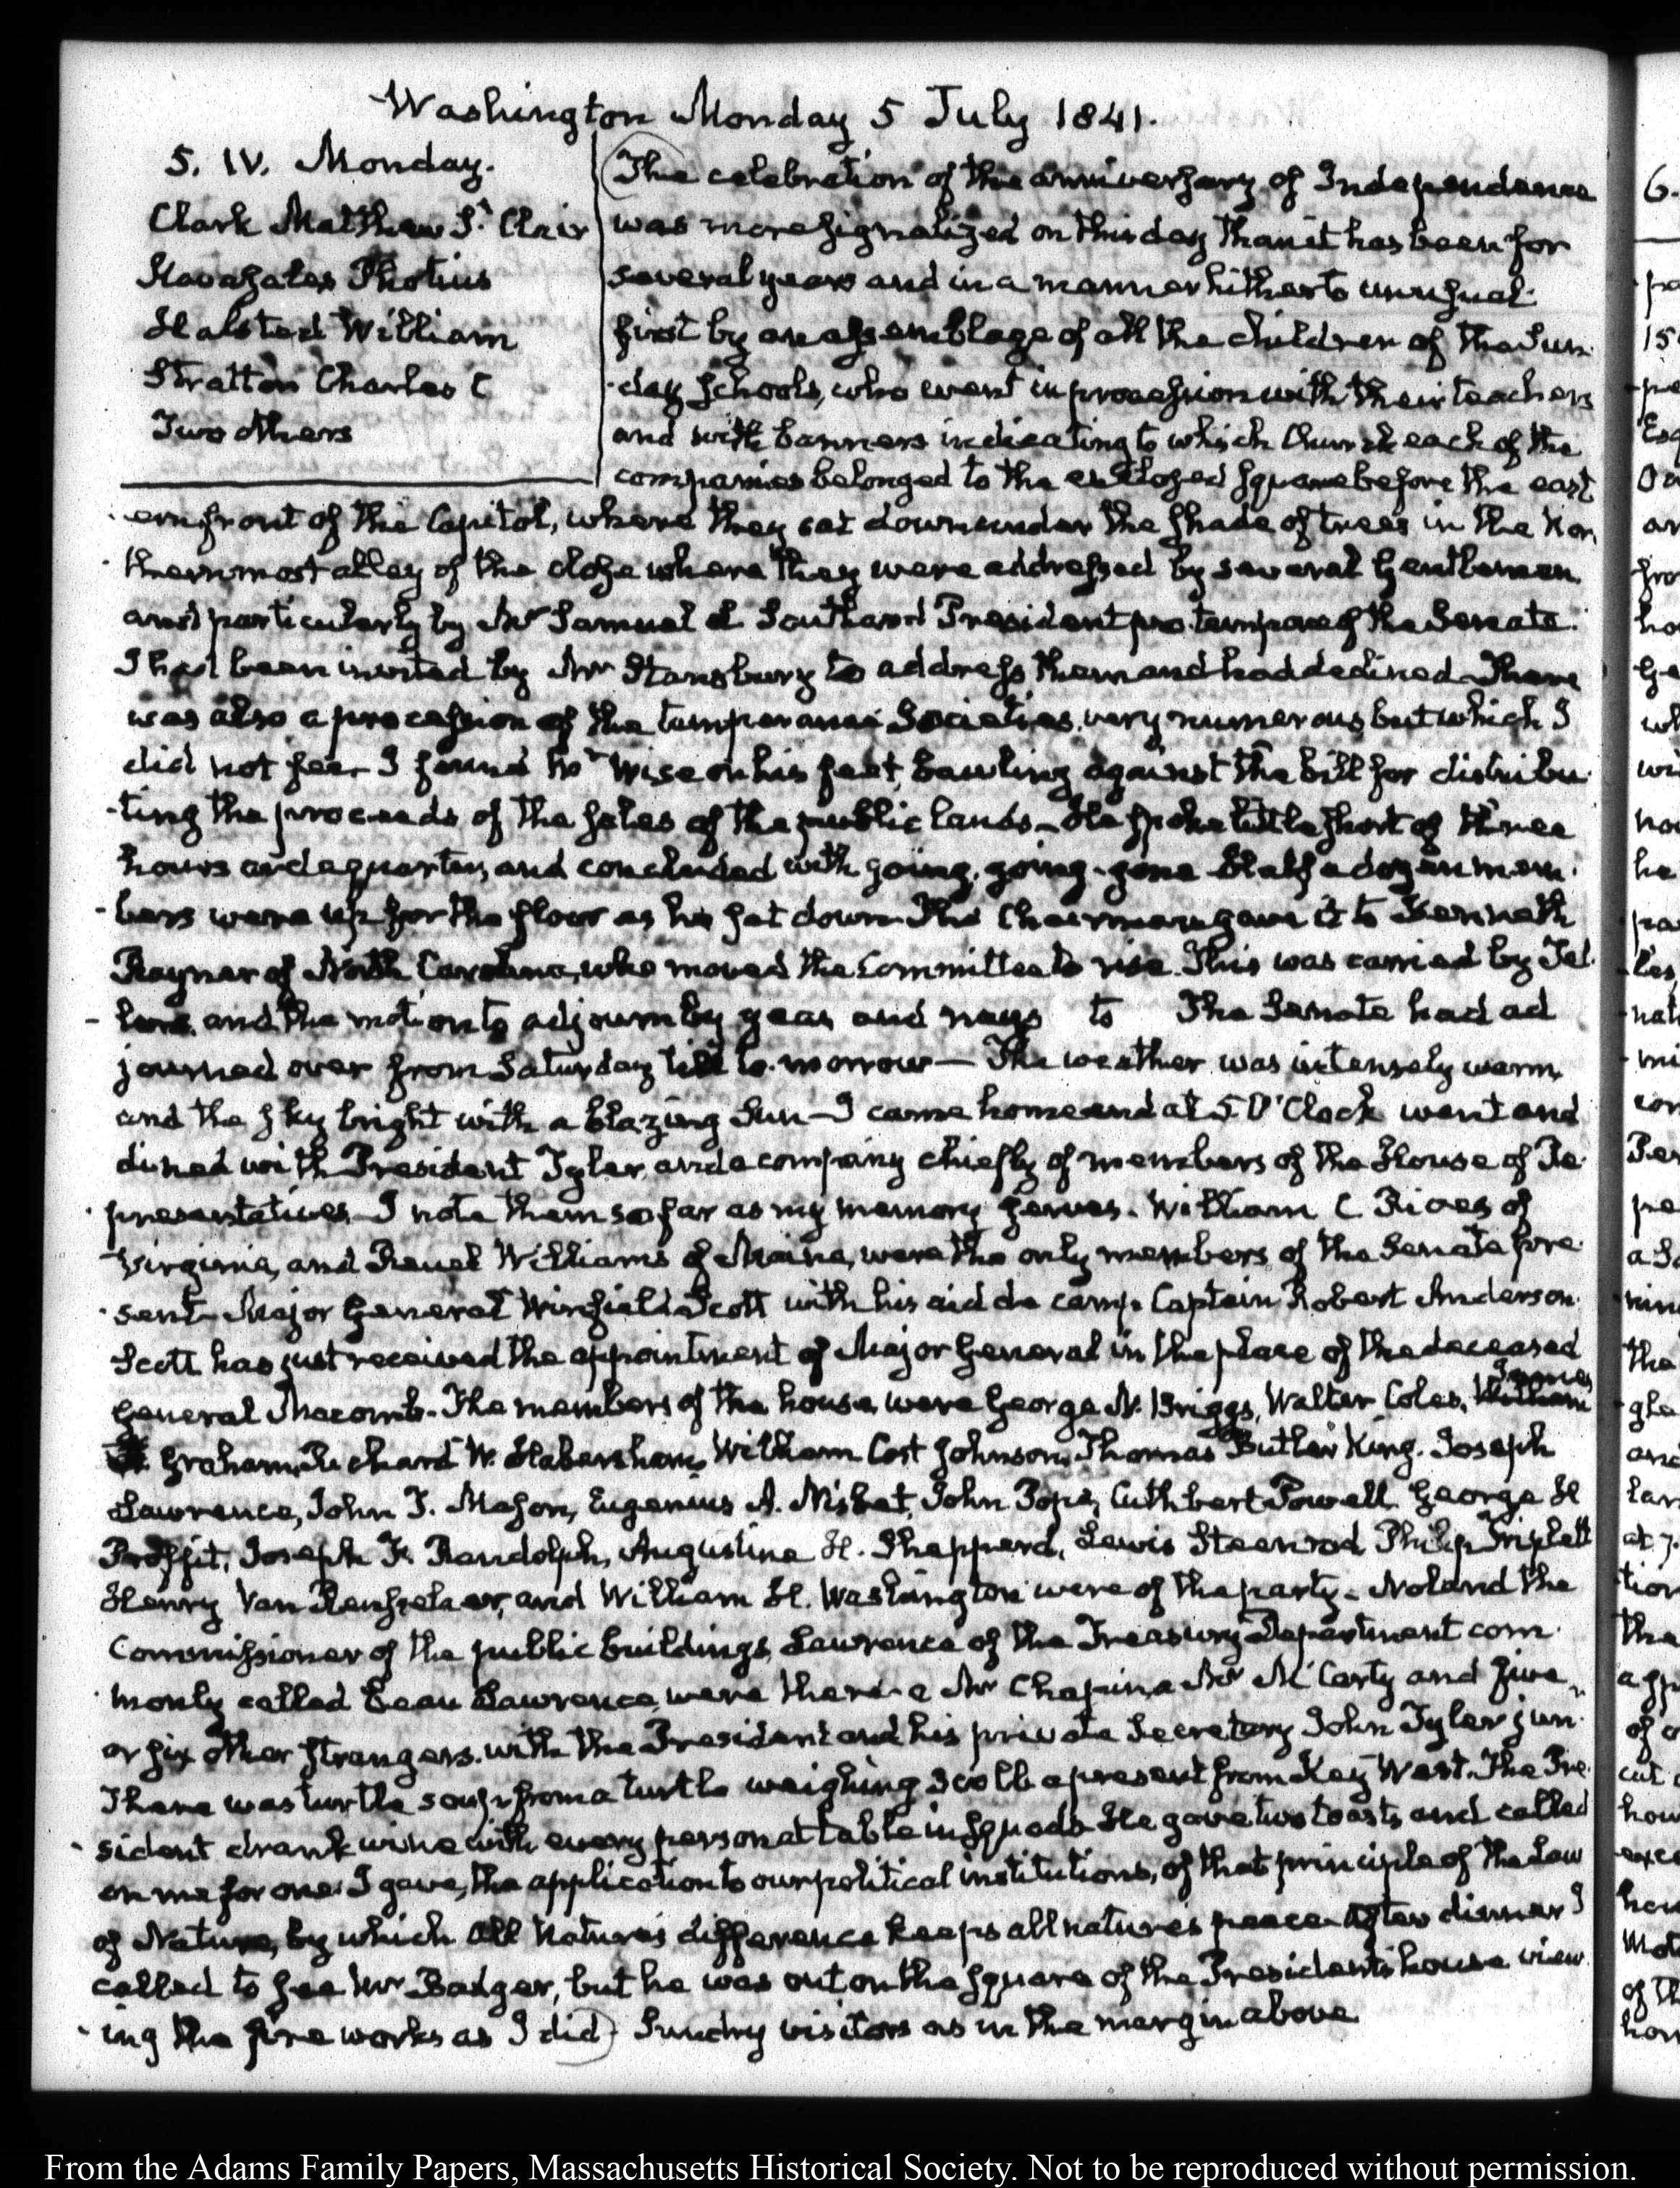 Washington Monday 5 July 1841.
5. IV. Monday.
Clark Matthew St. Clair
Kavasales Photius
Halsted William
Stratton Charles C
Two others
The celebration of the anniversary of Independence
was more signalized on this day than it has been for
several years and in a manner hitherto unusual.
first by an assemblage of all the children of the Sun-
-day schools, who went in procession with their teachers
and with banners indicating to which Church each of the
companies belonged to the enclosed square before the east
ern front of the Capitol, where they sat down under the shade of trees in the Nor
thernmost alley of the close where they were addressed by several Gentlemen,
and particularly by Mr Samuel L Southard President pro tempore of the Senate.
I had been invited by Mr Stansbury to address them and had declined. There
was also a procession of the temperance Societies, very numerous, but which I
did not see. I found Mr Wise on his feet, bawling against the bill for distribu-
-ting the proceeds of the sales of the public lands_ He spoke little short of three
hours and a quarter, and concluded with going, going, gone Half a dozen mem-
-bers were up for the floor as he sat down The Chairman gave it to Kenneth
Rayner of North Carolina, who moved the Committee to rise. This was carried by Tel-
-lers, and the motion to adjourn by yeas and nays to The Senate had ad
journed over from Saturday till to-morrow— The weather was intensely warm,
and the sky bright with a blazing Sun—I came home and at 5 O'Clock went and
dined with President Tyler, and a company chiefly of members of the House of Re-
-presentatives. I note them so far as my memory serves. William C. Rives of
Virginia, and Reuel Williams of Maine, were the only members of the Senate pre-
-sent. Major General Winfield Scott with his aid de camp Captain Robert Anderson.
Scott has just received the appointment of Major General in the place of the deceased
General Macomb. The members of the house, were George N. Briggs, Walter Coles, William James
Graham, Richard W. Habersham, William Cost Johnson, Thomas Butler King. Joseph
Lawrence, John T. Mason, Eugenius A. Nisbet, John Pope, Cuthbert Powell. George H
Proffit, Joseph F. Randolph, Augustine H. Shepperd, Lewis Steenrod Philip Triplett
Henry Van Rensselaer, and William H. Washington were of the party. Noland the
Commissioner of the public buildings, Lawrence of the Treasury Department com-
-monly called Beau Lawrence, were there a Mr Chapin, a Mr McCarty and five,
or six other strangers. with the President and his private Secretary John Tyler jun.
There was turtle soup from a turtle weighing 300 lb a present from Key West. The Pre-
-sident drank wine with every person at table in squads. He gave two toasts and called
on me for one: I gave, the application to our political institutions, of that principle of the Law
of Nature, by which All Nature's difference keeps all nature's peace. After dinner I
called to see Mr Badger, but he was out on the square of the President's house view-
-ing the fire works as I did Sundry visitors as in the margin above
From the Adams Family Papers, Massachusetts Historical Society. Not to be reproduced without permission.